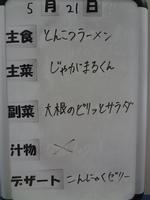 5月21日
主食 とんこつラーメン
主菜 じゃがまるくん
副菜 大根のピリッとサラダ
汁物 ×
デザート こんにゃくゼリー